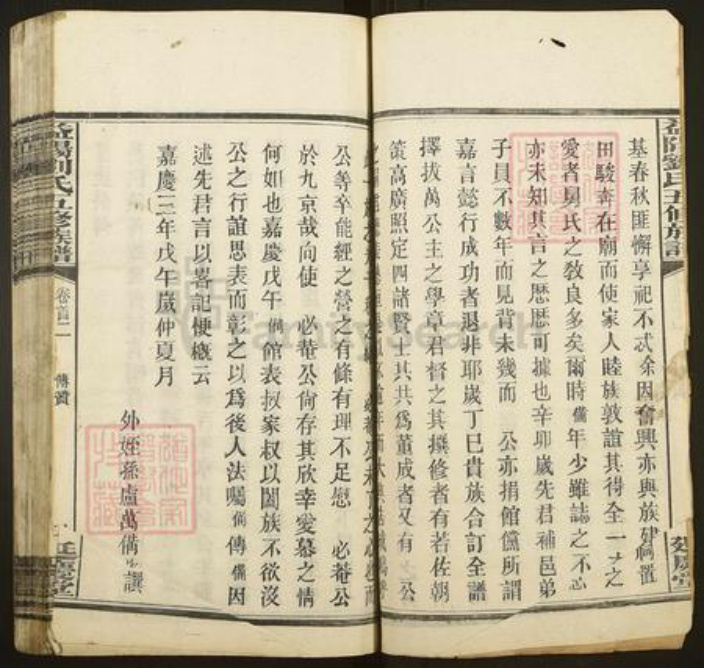 益陽劉氏五修族譜
廷慶堂
基春秋匪懈享祀不忒余因奮興亦與族建祠置
田駿奔在廟而使家人睦族敦誼其得全一才之
愛者舅氏之教良多矣爾時備年少雖誌之不忘
亦未知其言之歷歷可據也辛卯歲先君補邑弟
子員不數年而見背未幾而 公亦捐館儻所謂
嘉言懿行成功者退非耶歲丁巳貴族合訂全譜
擇拔萬公主之學章君督之其撰修者有若佐朝
策高廣照定四諸賢士其共為董成者又有 公
公等卒能經之營之有條有理不足慰 必菴公
於九京哉向使 必菴公尙存其欣幸愛慕之情
何如也嘉慶戊午備館表叔家叔以闔族不欲沒
公之行誼思表而彰之以為後人法囑備傳備因
述先君言以畧記梗概云
嘉慶三年戊午歲仲夏月
外姪孫盧萬備 譔
益陽劉氏五修族譜
卷首二
傳贊
廷慶堂
FamilySearch